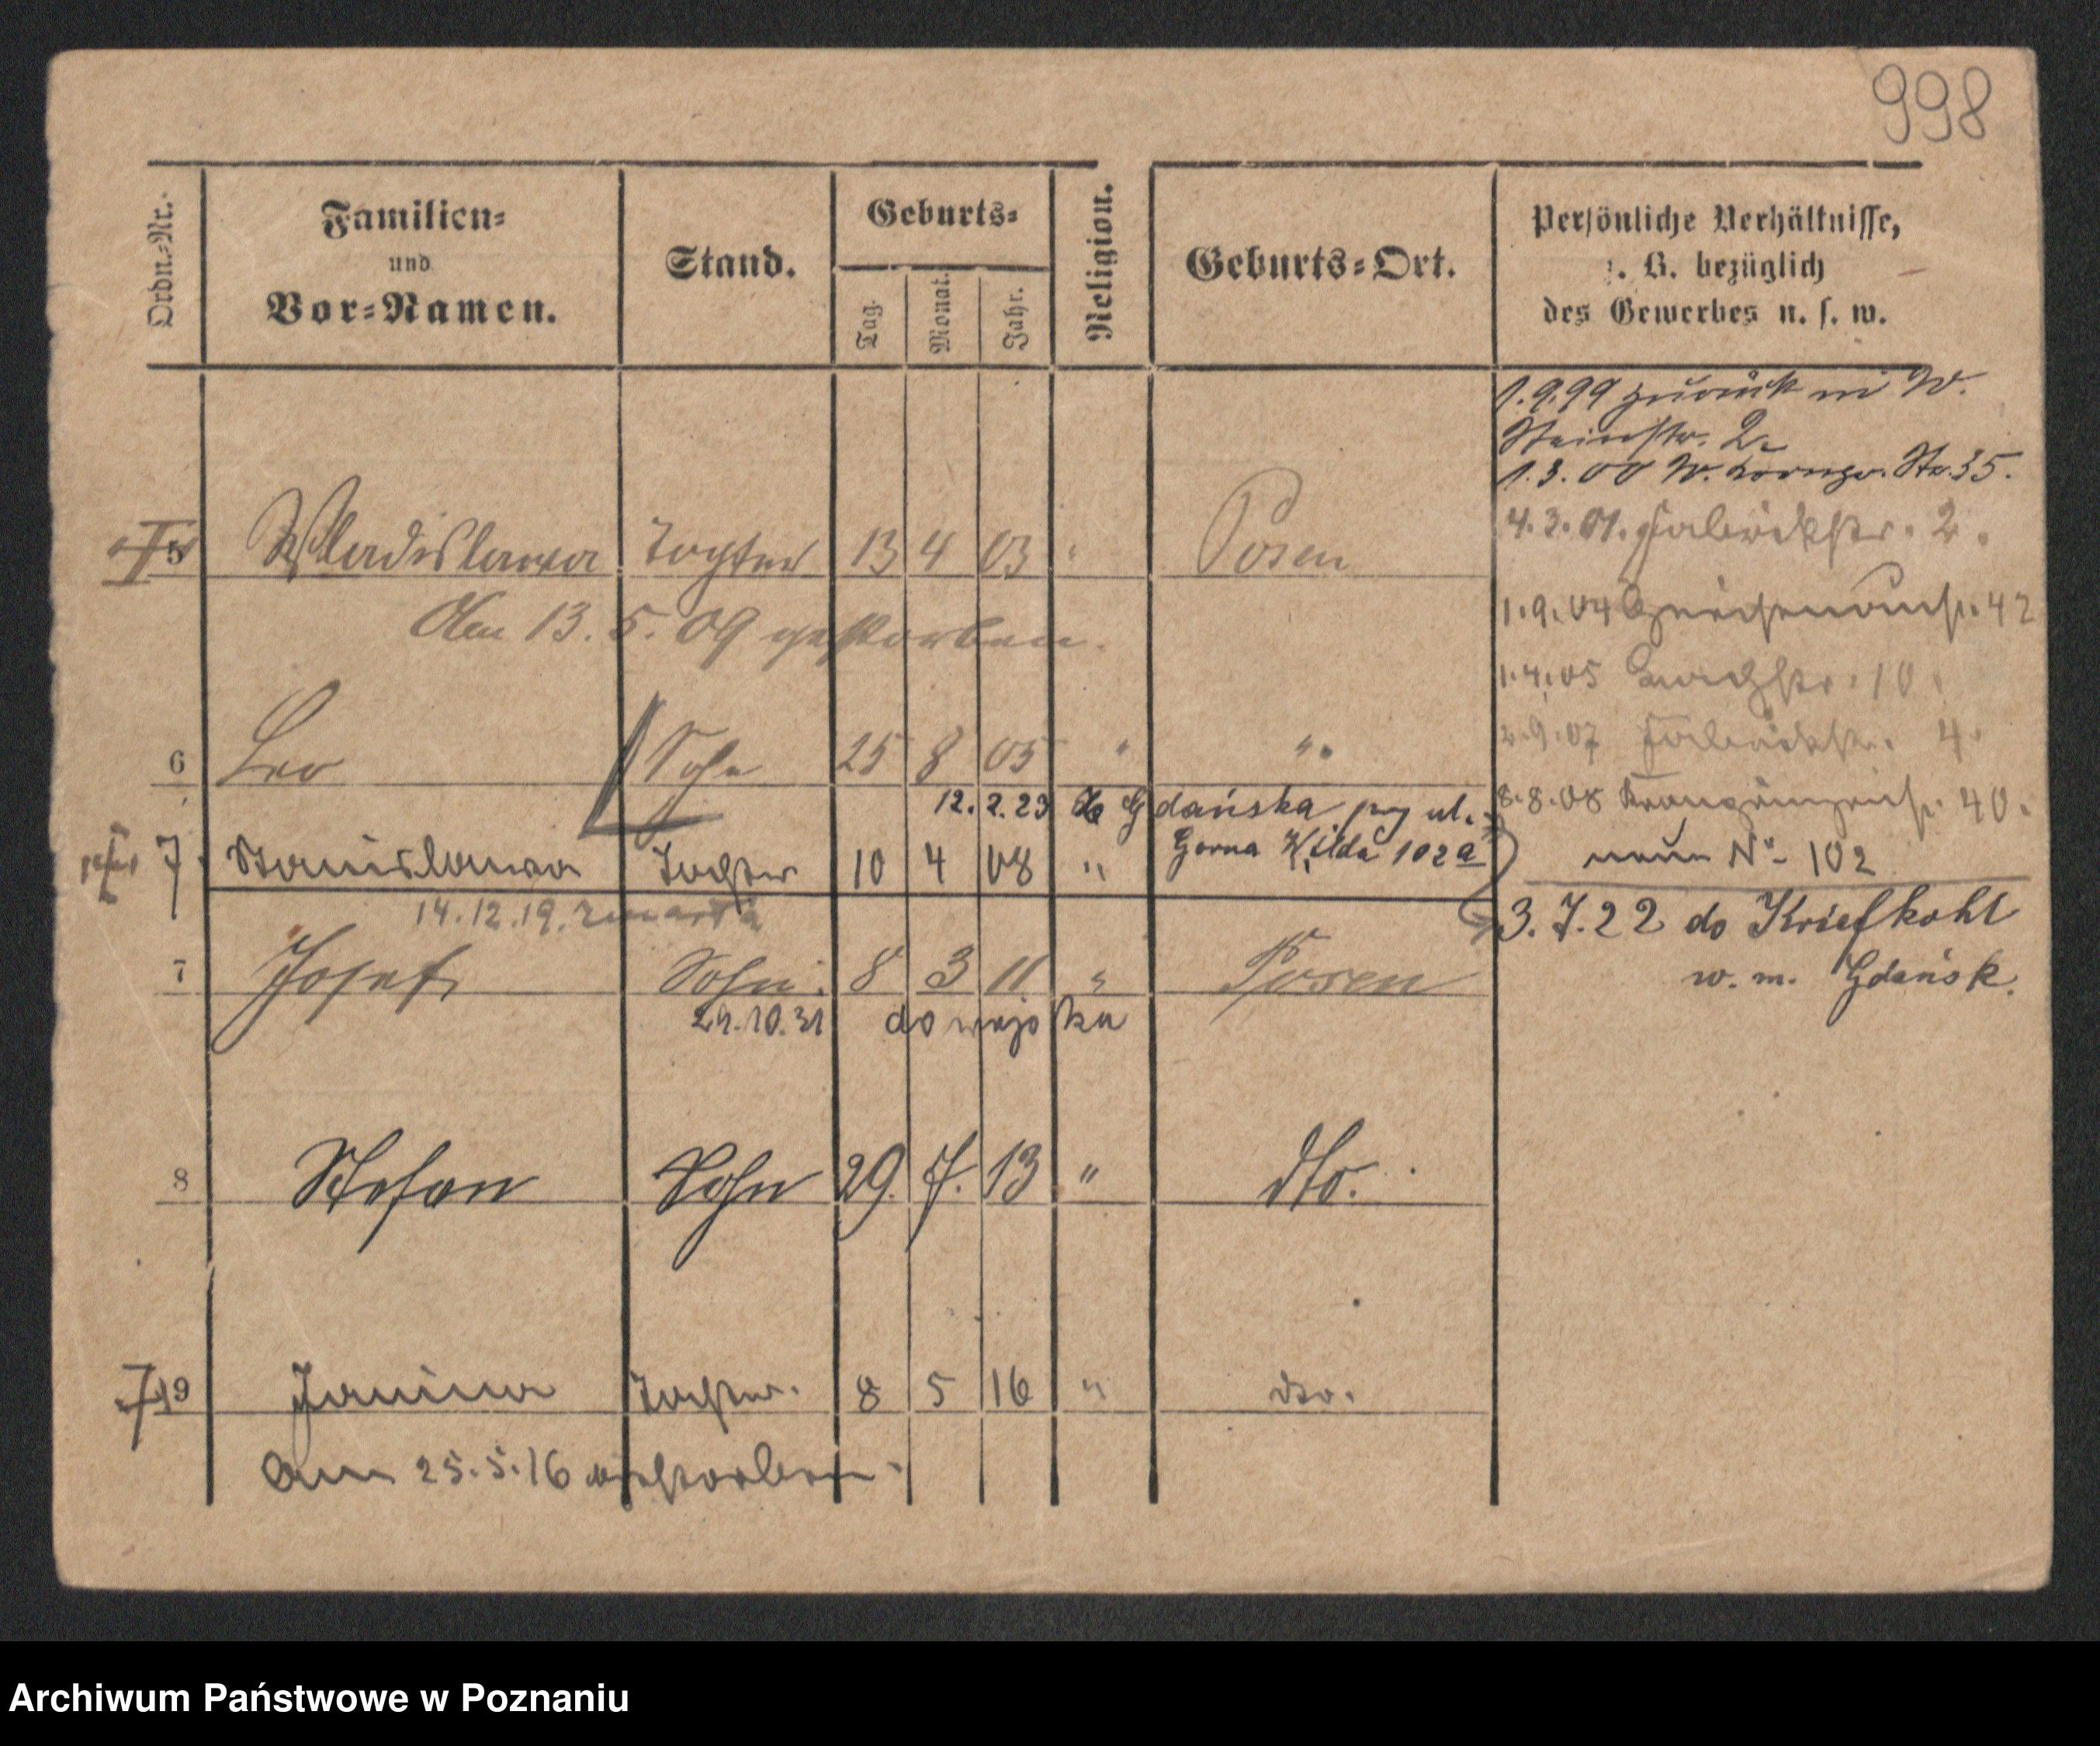 998
Ordn.-Nr.
Familien-
und
Vor-Namen.
Stand.
Geburts-
Tag.
Monat.
Jahr.
Religion.
Geburts-Ort.
Persönliche Verhältnisse,
z. B. bezüglich
des Gewerbes u. s. w.
1.9.99 zurück in W.
Steinstr. 2.
1.3.00 W. Kronpr. Str. 35.
4.3.01. Fabrikstr. 2.
5 Wladislawa Tochter 13 4 03 " Posen
Am 13.5.09 gestorben.
1.9.04 Gneisenaustr. 42
1.4.05 10
6 Leo Sohn 25 8 05 " "
9.07 Fabrikstr. 4.
12.2.23 do Gdańska przy ul.
Gorna Wilda 102a
8.8.08 Kronprinzenstr. 40.
neue No 102
7 Stanislawa Tochter 10 4 08 "
14.12.19. zmarła
3.7.22 do Kriefkohl
w. m. Gdańsk.
7 Josef Sohn 8 3 11 " Posen
29.10.31 do wojska
8 Stefan Sohn 29. 7. 13 " dto.
9 Janina Tochter. 8 5 16 " dto.
Am 25.5.16 gestorben.
Archiwum Państwowe w Poznaniu